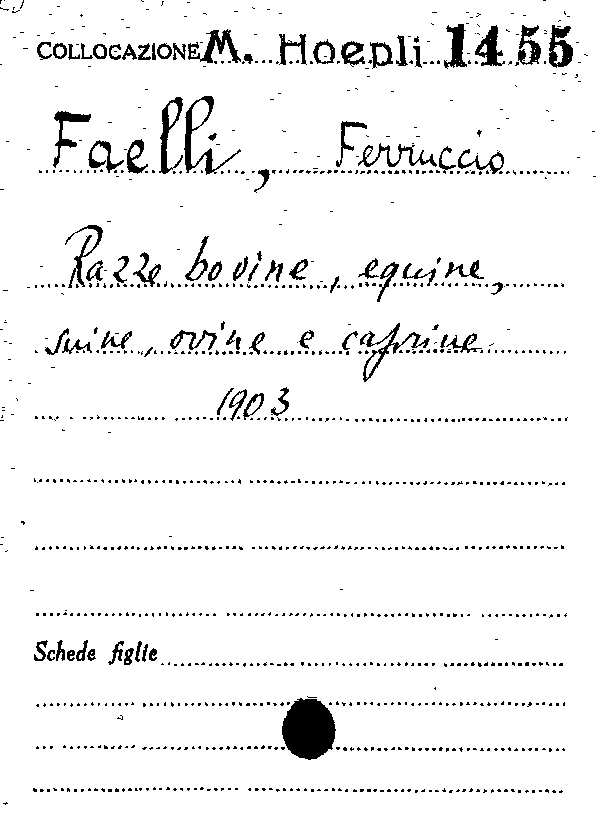 COLLOCAZIONE M. Hoepli 1455
Faelli, Ferruccio
Razze bovine, equine,
suine, ovine e caprine
1903
Schede figlie